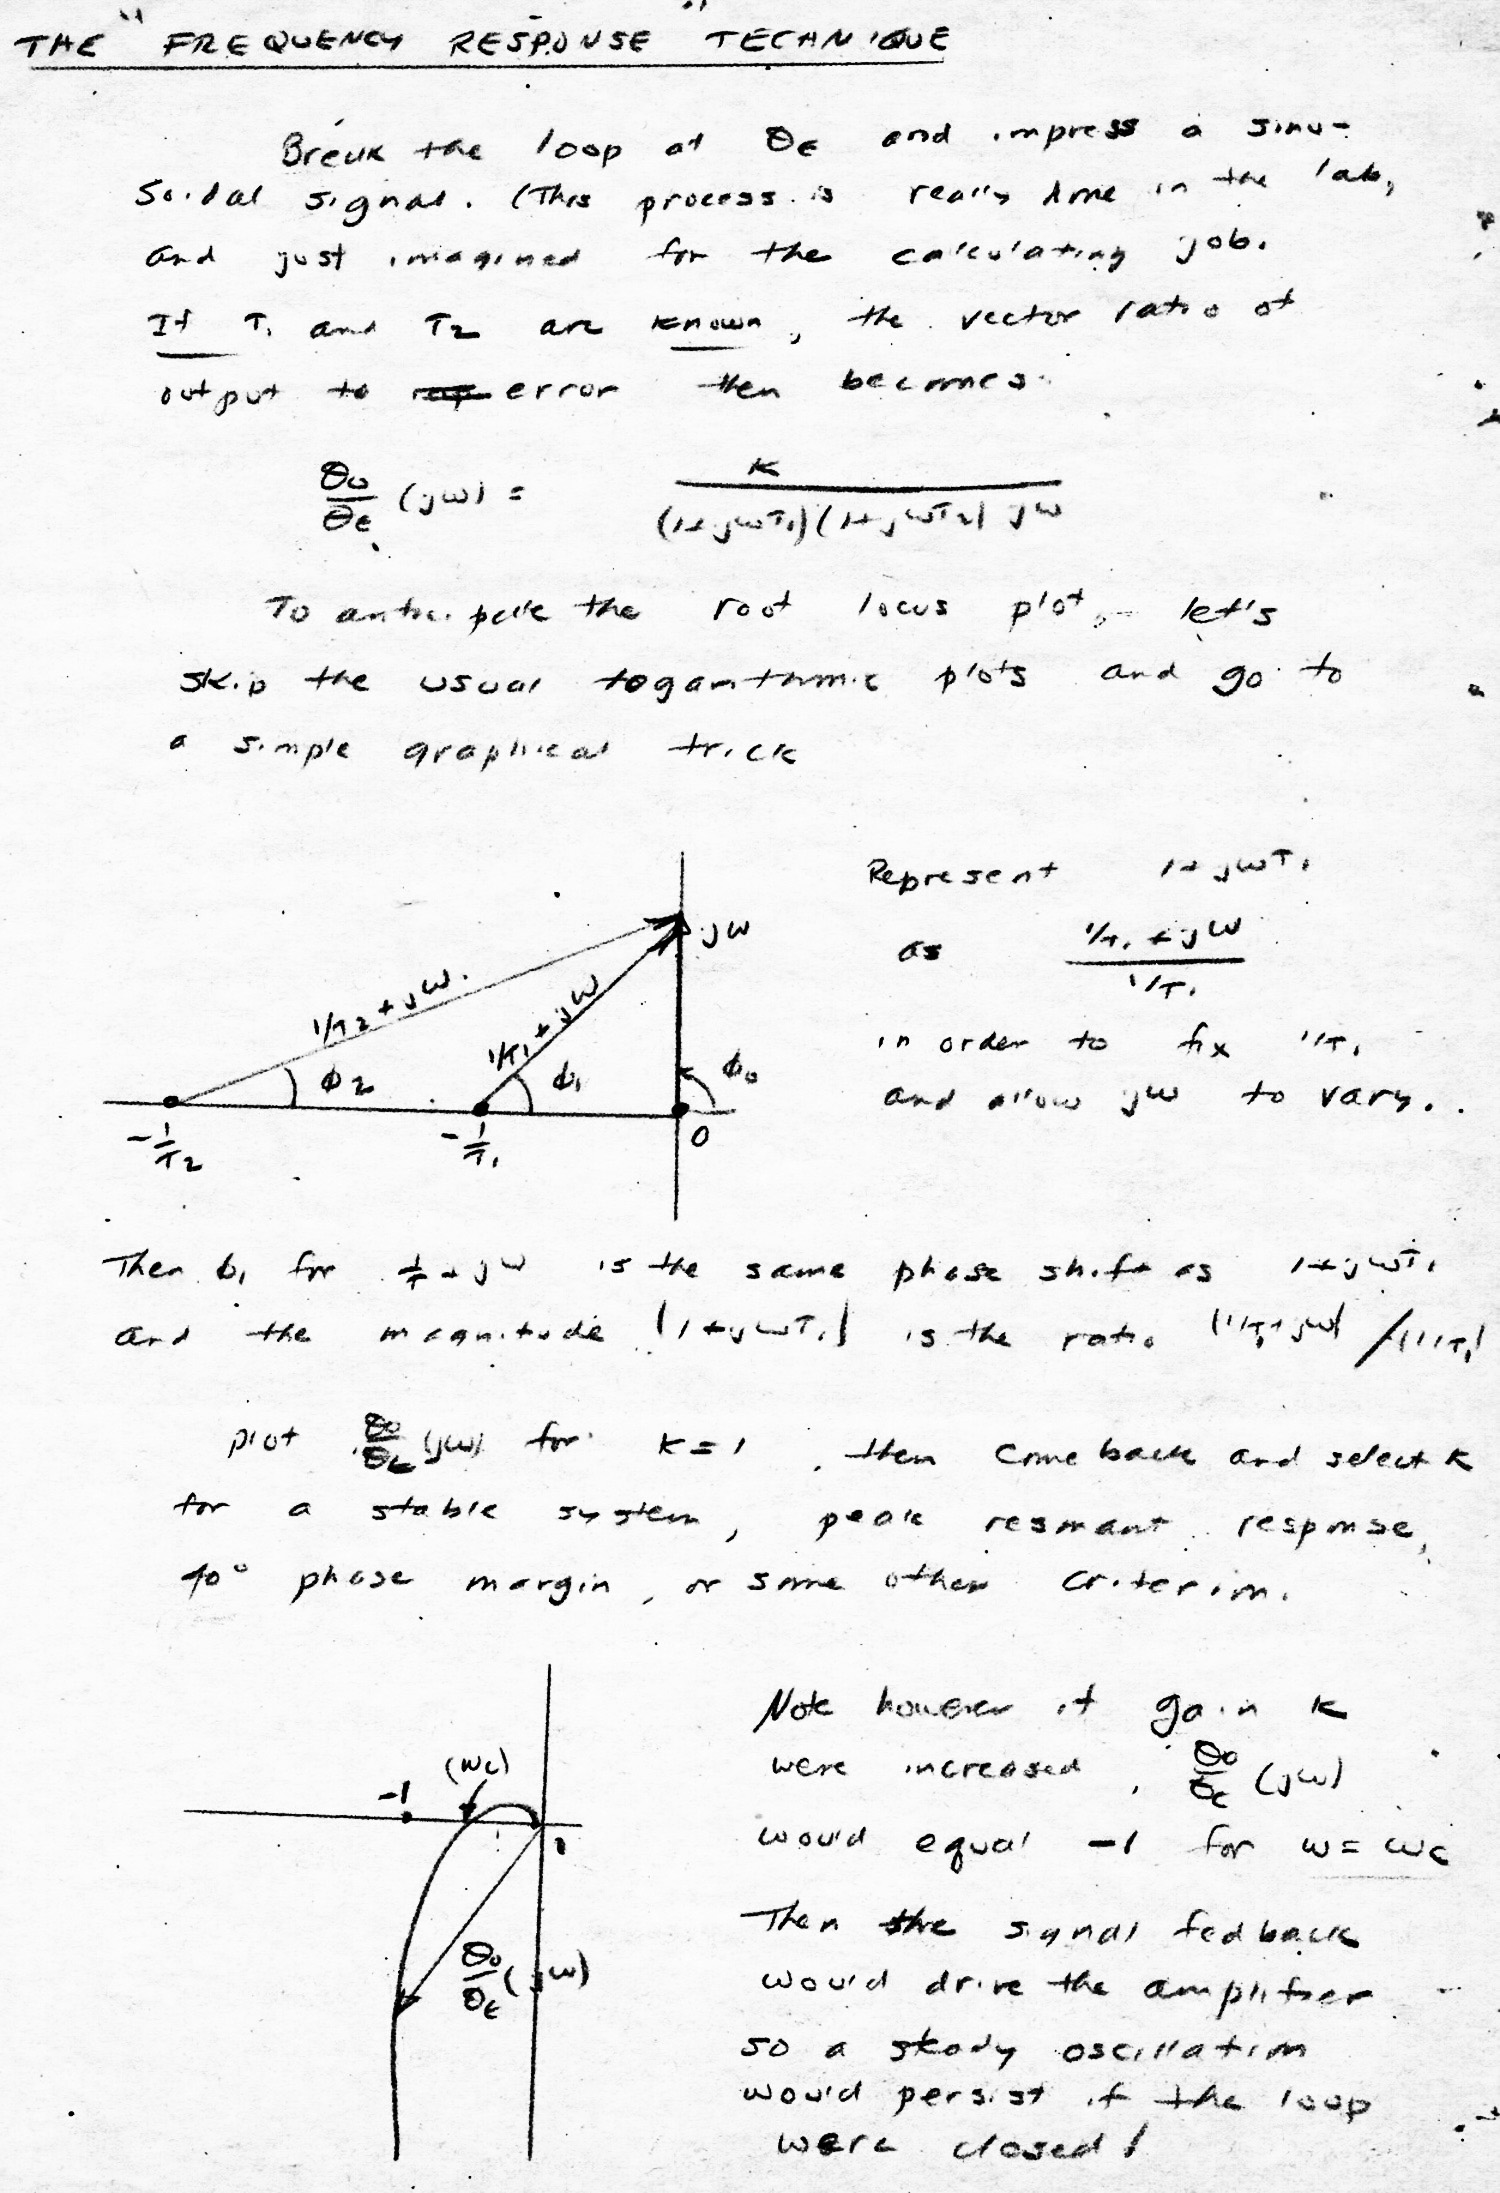 THE "FREQUENCY RESPONSE" TECHNIQUE
Break the loop at θε and impress a sinu-
soidal signal. (This process is really done in the lab,
and just imagined for the calculating job.
If T1 and T2 are known, the vector ratio of
output to error then becomes:
θo/θε (jω) = K / (1+jωT1)(1+jωT2) jω
To anticipate the root locus plot, let's
skip the usual logarithmic plots and go to
a simple graphical trick
Represent 1+jωT1
as (1/T1 + jω) / (1/T1)
in order to fix 1/T1
and allow jω to vary.
jω
1/T2 + jω
1/T1 + jω
ϕ2
ϕ1
ϕ0
-1/T2
-1/T1
0
Then ϕ1 for 1/T + jω is the same phase shift as 1+jωT1
and the magnitude |1+jωT1| is the ratio |1/T1+jω| / |1/T1|
Plot θo/θε (jω) for K=1, then come back and select K
for a stable system, peak resonant response,
40° phase margin, or some other criterion.
Note however if gain K
were increased, θo/θε (jω)
would equal -1 for ω = ωc
Then the signal fedback
would drive the amplifier
so a steady oscillation
would persist if the loop
were closed!
(ωc)
-1
θo/θε (jω)